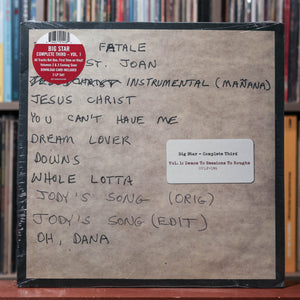 BIG STAR
COMPLETE THIRD - VOL. 1
2 LP Set
FATALE
ST. JOAN
INSTRUMENTAL (MAÑANA)
JESUS CHRIST
YOU CAN'T HAVE ME
DREAM LOVER
DOWNS
WHOLE LOTTA
JODY'S SONG (ORIG)
JODY'S SONG (EDIT)
OH, DANA
Big Star - Complete Third
Vol. 1: Demos To Sessions To Roughs